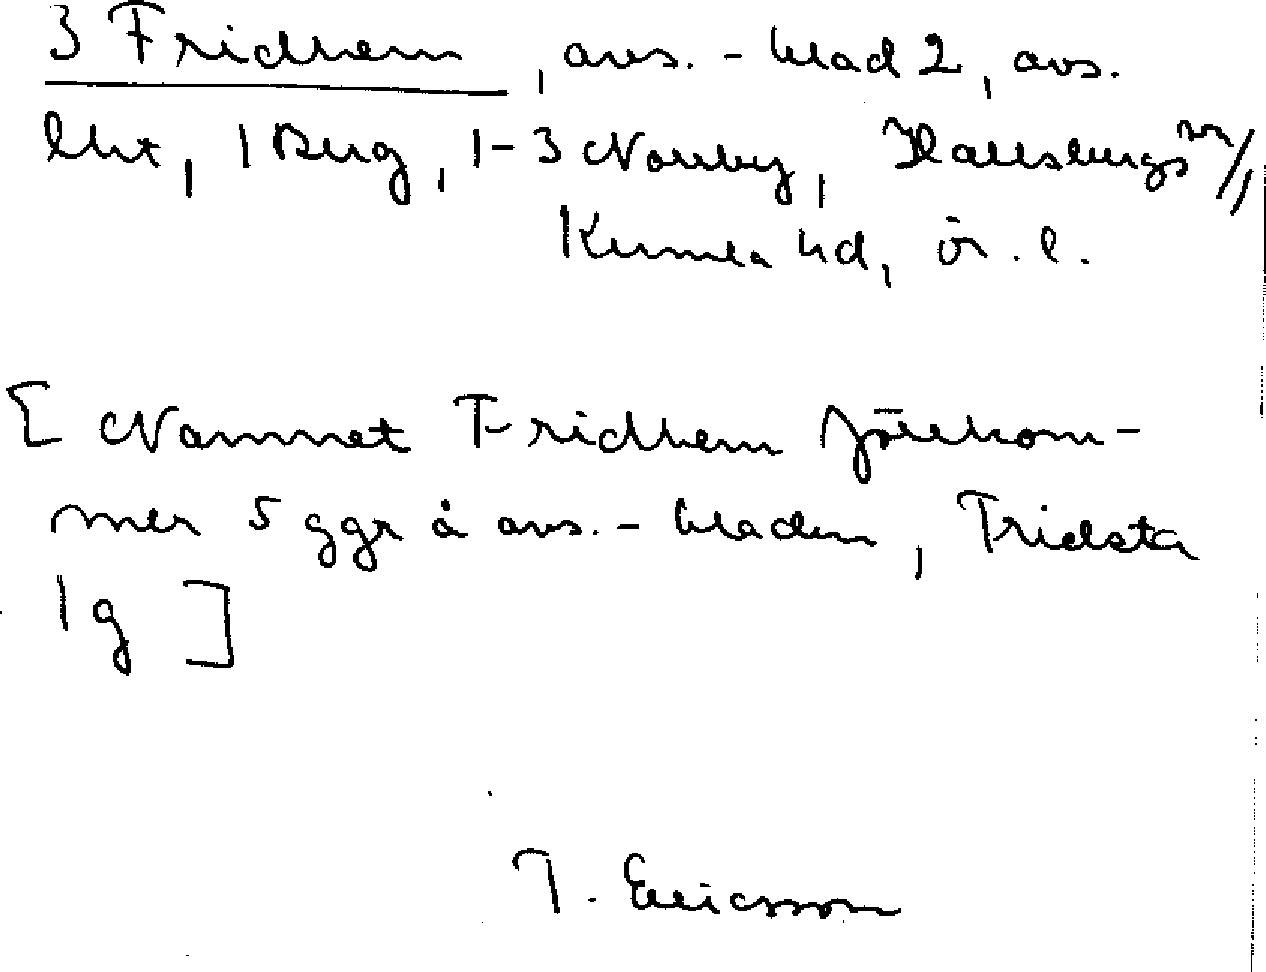 3 Fridhem, avs.-blad 2, avs.
lht, 1 Berg, 1-3 Norrby, Hallsbergs
Kumla hd, ör. l.
[Namnet Fridhem förekom-
mer 5 ggr å avs.-bladen, Fridsta
1 g]
T. Ericsson